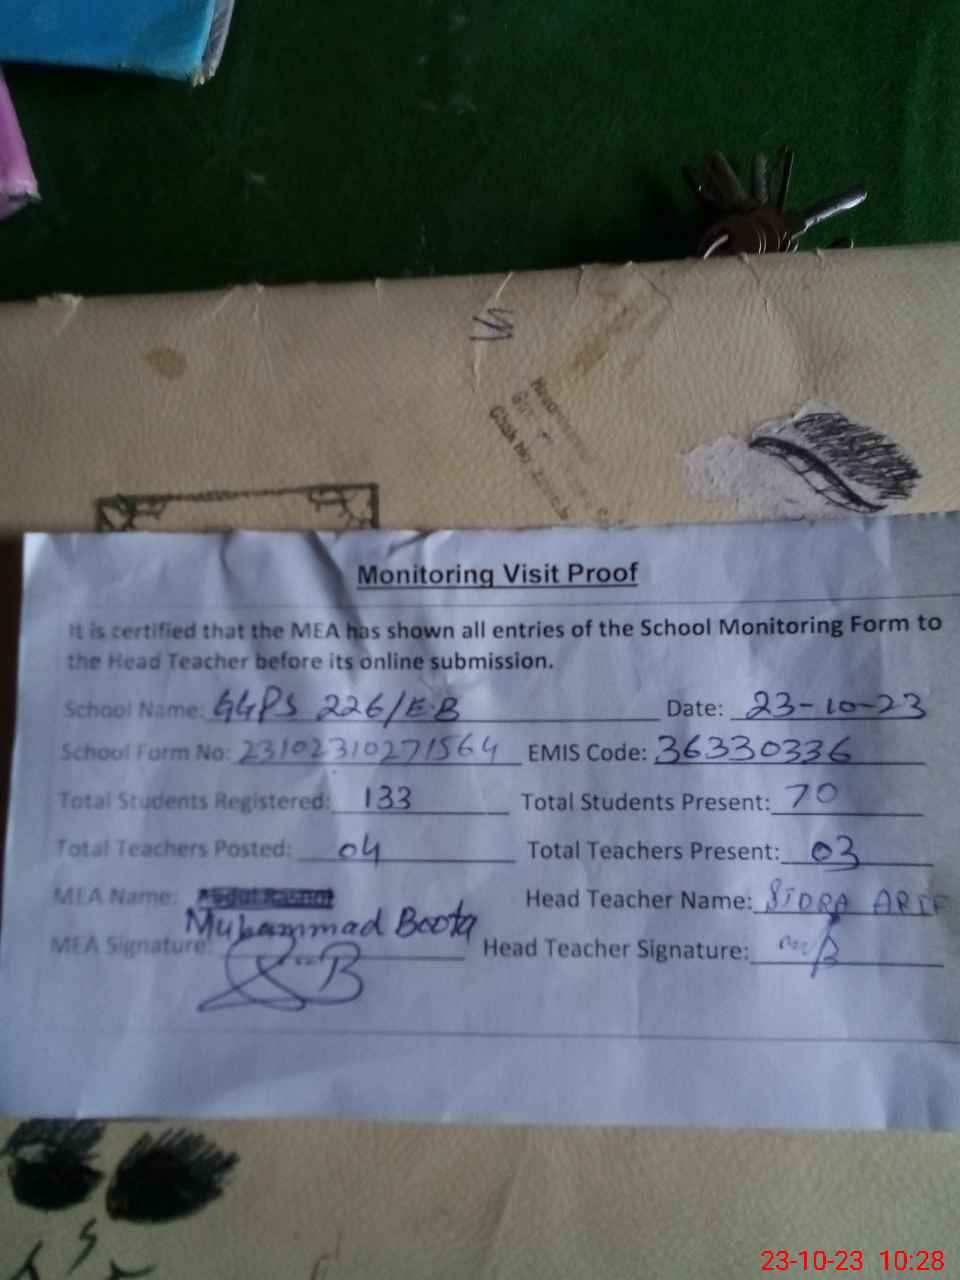 Chak No.
Monitoring Visit Proof
It is certified that the MEA has shown all entries of the School Monitoring Form to
the Head Teacher before its online submission.
School Name: GGPS 226/E.B Date: 23-10-23
School Form No: 23102310271564 EMIS Code: 36330336
Total Students Registered: 133 Total Students Present: 70
Total Teachers Posted: 04 Total Teachers Present: 03
MEA Name: Head Teacher Name: SIDRA ARIF
Muhammad Boota
MEA Signature: Head Teacher Signature:
23-10-23 10:28